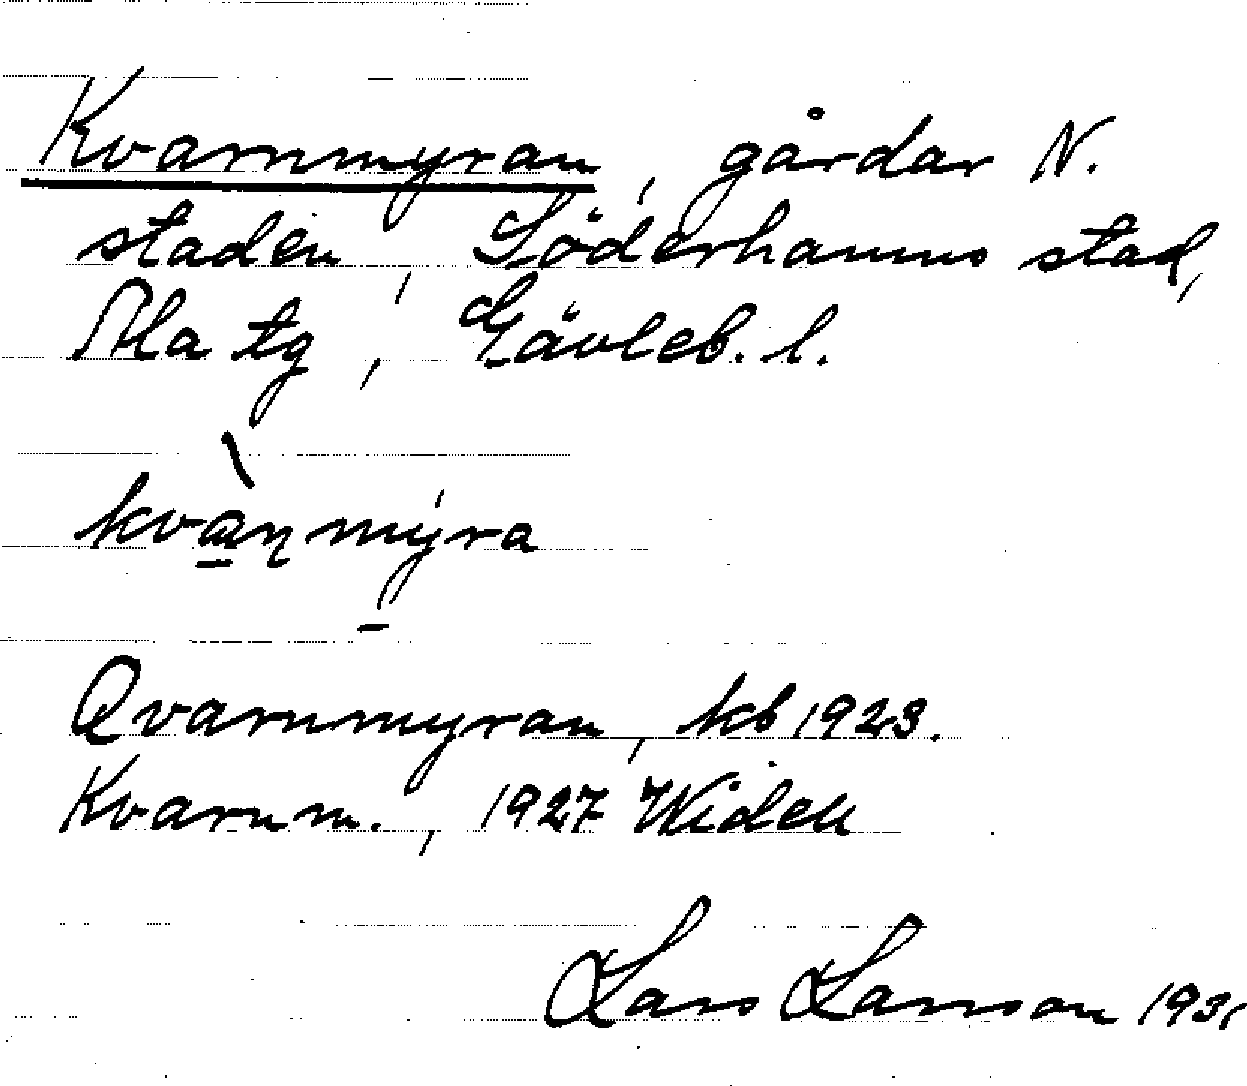 Kvarnmyran, gårdar N.
staden, Söderhamns stad,
Ala tg, Gävleb. l.
kvàn̥mýra
Qvarnmyran, kb 1923.
Kvarnm., 1927 Widell
Lars Larsson 1931